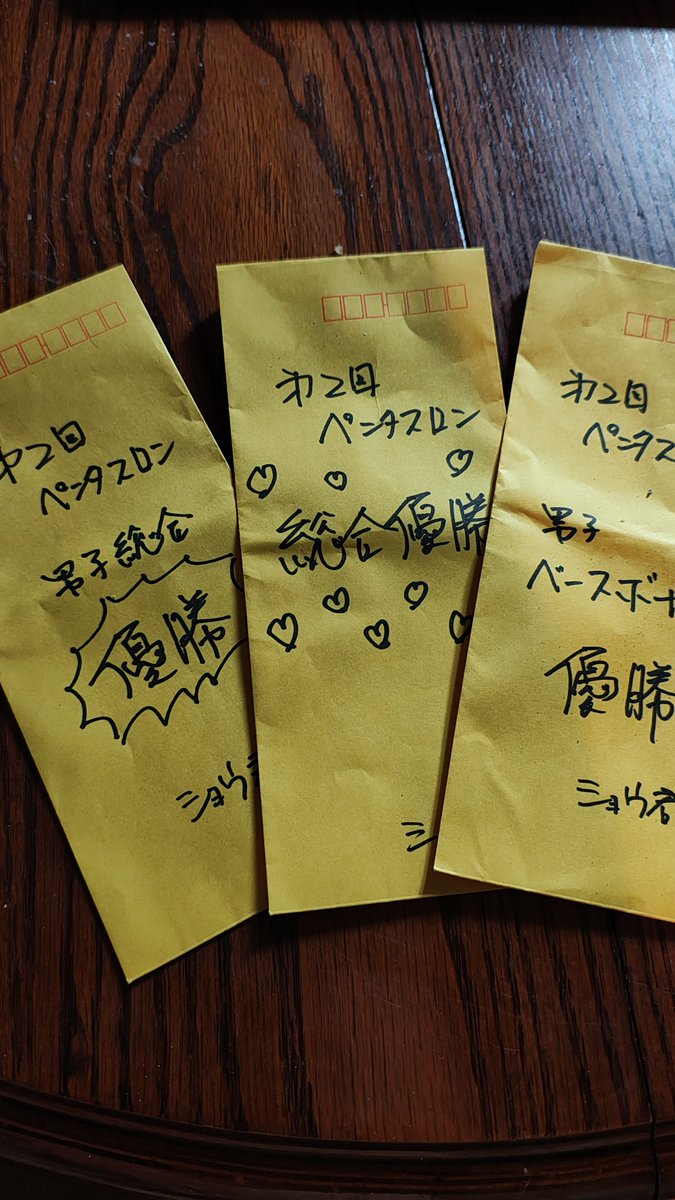 第2回
ペンタスロン
男子総合
優勝
ショウ君
第2回
ペンタスロン
総合優勝
第2回
ペンタス
男子
ベースボー
優勝
ショウ君